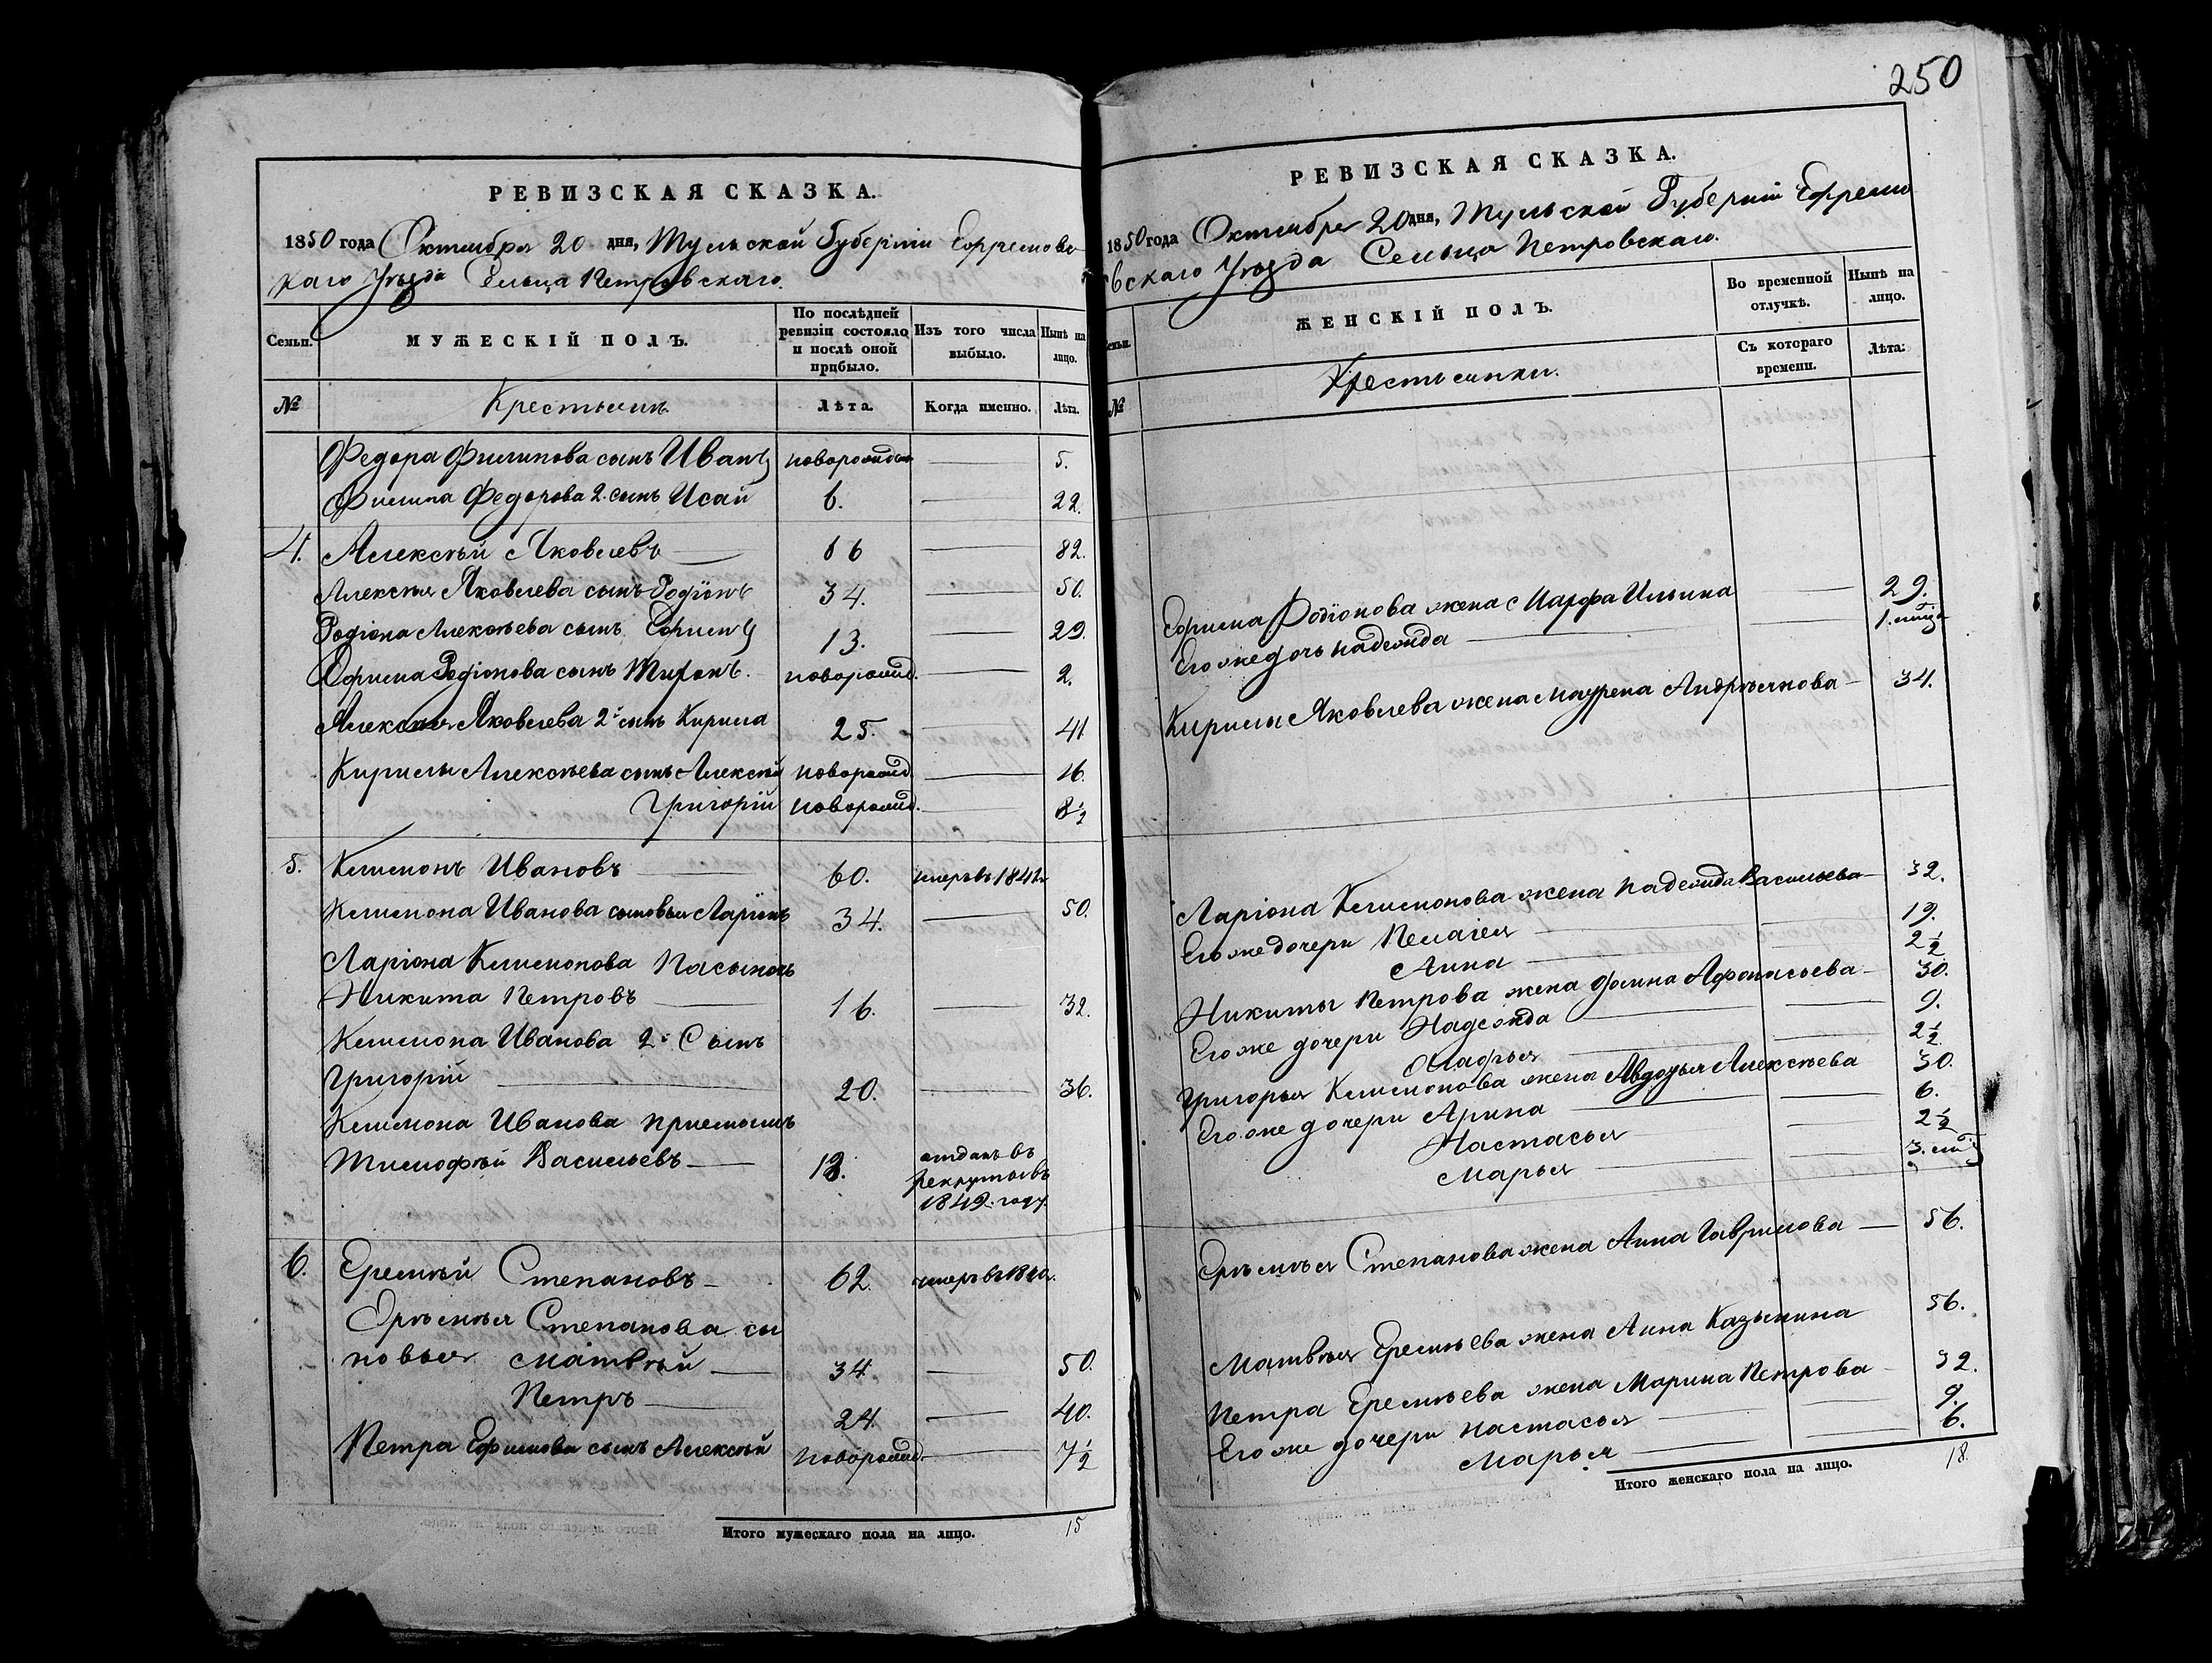 РЕВИЗСКАЯ СКАЗКА.
1850 года Октября 20 дня, Тульской Губернiи Ефремовс
каго Уѣзда Сельца Петровскаго.
Семьи.
МУЖЕСКIЙ ПОЛЪ.
По послѣдней ревизiи состояло и послѣ оной прибыло.
Изъ того числа выбыло.
Нынѣ на лицо.
№
Крестьяне
Лѣта.
Когда именно.
Лѣта.
Федора Филипова сынъ Иванъ новорожден 5.
Филипа Федорова 2. сынъ Исай 6. 22.
4. Алексѣй Яковлевъ 66 82.
Алексѣя Яковлева сынъ Родiонъ 34. 50.
Родiона Алексѣева сынъ Ефимъ 13. 29.
Ефима Родiонова сынъ Миронъ. новорожд. 2.
Алексѣя Яковлева 2й сынъ Кирила 25. 41
Кирилы Алексѣева сынъ Алексѣй новорожд. 16.
Григорiй новорожд. 8½
5. Килимонъ Ивановъ 60. умеръ въ 1841г
Килимона Иванова сыновья Ларiонъ 34. 50.
Ларiона Килимонова Пасынокъ
Никита Петровъ 16. 32.
Килимона Иванова 2й Сынъ
Григорiй 20. 36.
Килимона Иванова приемышъ
Тимофѣй Васильевъ 13. отданъ въ
рекруты въ
1849. году.
6. Еремѣй Степановъ 62. умеръ въ 1840г.
Ерѣмѣя Степанова сы
новья Матвѣй 34 50.
Петръ 24 40.
Петра Ефимова сынъ Алексѣй новорожд. 7½
Итого мужескаго пола на лицо. 15
250
РЕВИЗСКАЯ СКАЗКА.
1850 года Октября 20 дня, Тульской Губернiи Ефремо
вскаго Уѣзда Сельца Петровскаго.
Семьи.
ЖЕНСКIЙ ПОЛЪ.
Во временной отлучкѣ.
Нынѣ на лицо.
№
Крестьянки.
Съ котораго времени.
Лѣта:
Ефима Родiонова жена Марфа Ильина 29.
Его же дочь Надежда 1. мца
Кирилы Яковлева жена Маурена Андрѣянова 34.
Ларiона Килимонова жена Надежда Васильева 32.
Его же дочери Пелагея 19.
Анна 2½
Никиты Петрова жена Фолина Афонасьева 30.
Его же дочери Надежда 9.
2½
Григорья Килимонова жена Авдотья Алексѣева 30.
Его же дочери Арина 6.
Настасья 2½
Марья 3. мц
Ерѣмѣя Степанова жена Анна Гаврилова 56.
Матвѣя Еремѣева жена Анна Казьмина 56.
Петра Еремѣева жена Марина Петрова 32.
Его же дочери Настасья 9.
Марья 6.
Итого женскаго пола на лицо. 18